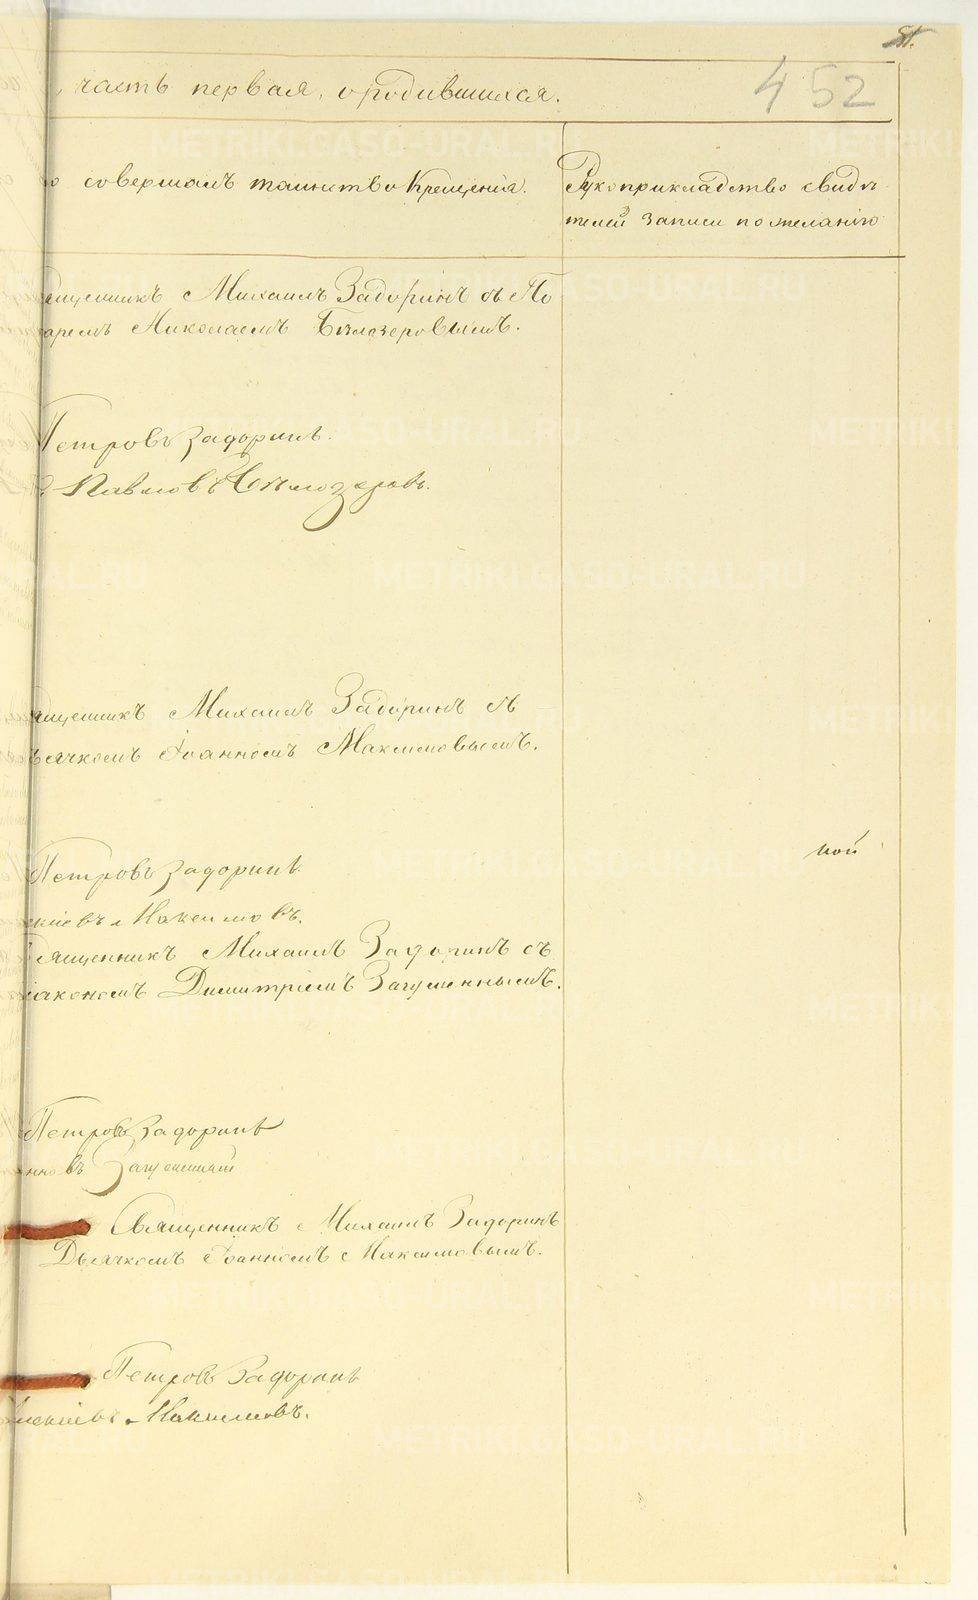 452
, часть первая, о родившихся.
о совершалъ таинство Крещенія.
Рукоприкладство свидѣ
телей записи по желанію
ященникъ Михаилъ Задоринъ съ По
Николаемъ Бѣлозеровымъ.
Петровъ Задоринъ.
Павловъ Бѣлозеровъ.
ященникъ Михаилъ Задоринъ съ
ьячкомъ Іоанномъ Максимовымъ.
ной
Петровъ Задоринъ
Максимовъ.
вященникъ Михаилъ Задоринъ съ
іакономъ Димитріемъ Загуменнымъ.
Петровъ Задоринъ
нновъ Загуменный
Священникъ Михаилъ Задоринъ
Дьячкомъ Іоанномъ Максимовымъ.
Петровъ Задоринъ
Максимовъ.
METRIKI.GASO-URAL.RU